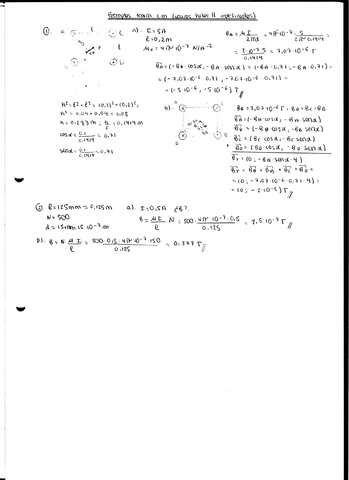 Ejemplos teoría c.m (varios hilos || indefinidos)
① a). I = 5A
l = 0,2m
μ₀ = 4π·10⁻⁷ N/A²
B_A = μ I / 2πd = 4π·10⁻⁷·5 / 2π·0,1414 =
= 7,07·10⁻⁶ T
B_A = (-B_A cosα, -B_A senα) = (-B_A·0,71; -B_A·0,71) =
= (-7,07·10⁻⁶·0,71, -7,07·10⁻⁶·0,71) =
= (-5·10⁻⁶, -5·10⁻⁶) T //
h² = 0,04 + 0,04 = 0,08
h = 0,283m; h/2 = 0,1414m
cosα = 0,1 / 0,1414 = 0,71
senα = 0,1 / 0,1414 = 0,71
b).
B_A = 7,07·10⁻⁶ T = B_B = B_C = B_D
B_A = (-B_A cosα, -B_A senα)
B_C = (B_C cosα, -B_C senα)
B_D = (B_D cosα, -B_D senα)
B_T = (0; -B_A senα·4)
B_T = B_A + B_B + B_C + B_D =
= (0; -7,07·10⁻⁶·0,71·4) =
= (0; -2·10⁻⁵) T //
② l = 125mm = 0,125m
N = 500
d = 15mm = 15·10⁻³ m
a). I = 0,5A ¿B?
B = μ I / l N = 500·4π·10⁻⁷·0,5 / 0,125 = 2,5·10⁻³ T //
b). B = N·μ I / l = 500·0,15·4π·10⁻⁷·150 / 0,125 = 0,377 T //